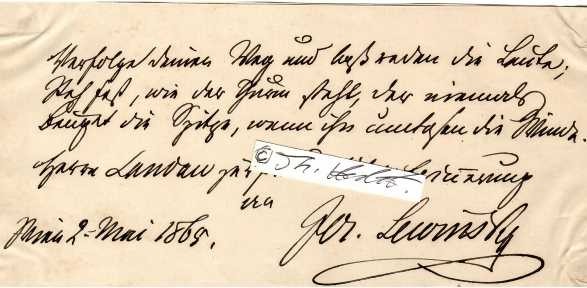 Verfolge deinen Weg und laß reden die Leute;
Steh fest, wie der Thurm steht, der niemals
beuget die Spitze, wenn ihn umtosen die Winde.
Herrn Landau zur Erinnerung
an
Wien 2. Mai 1865. Jos. Lewinsky